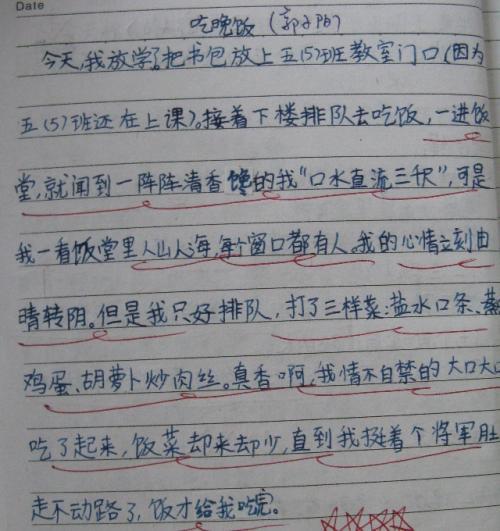 Date
吃晚饭（郭子阳）
今天，我放学了把书包放上五(5)班教室门口(因为
五(5)班还在上课)。接着下楼排队去吃饭，一进饭
堂，就闻到一阵阵清香馋的我“口水直流三尺”，可是
我一看饭堂里人山人海，每个窗口都有人。我的心情立刻由
晴转阴。但是我只好排队，打了三样菜：盐水口条、蒸
鸡蛋、胡萝卜炒肉丝。真香啊，我情不自禁的大口大口
吃了起来，饭菜却来却少，直到我挺着个将军肚
走不动路了，饭才给我吃完。